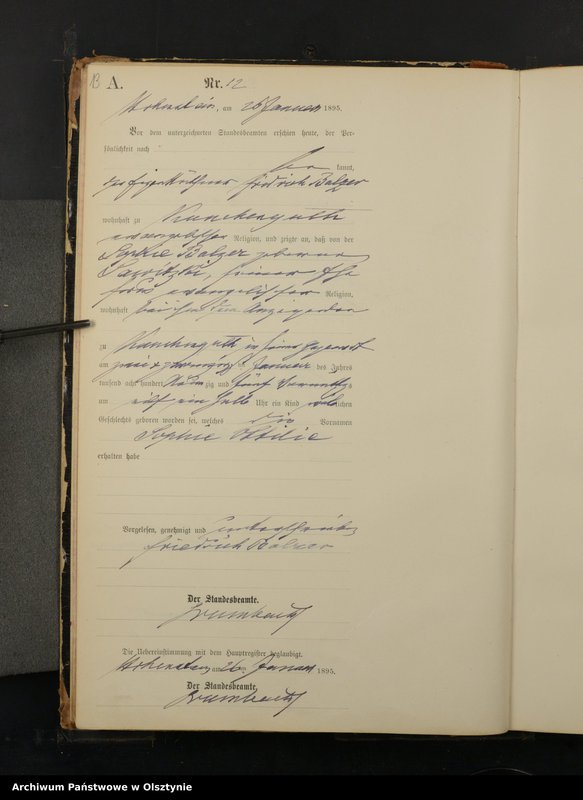 13 A. Nr. 12
Hohenstein, am 26 Januar 1895.
Vor dem unterzeichneten Standesbeamten erschien heute, der Per-
sönlichkeit nach
be kannt,
der Friedrich Balzer
wohnhaft zu
evangelischer Religion, und zeigte an, daß von der
Sophie Balzer geborenen
seiner Ehe
frau evangelischer Religion,
wohnhaft bei
zu in seiner Gegenwart
am zwei u zwanzigsten Januar des Jahres
tausend acht hundert neun zig und fünf Vormittags
um ein halb Uhr ein Kind weiblichen
Geschlechts geboren worden sei, welches die Vornamen
Sophie Ottilie
erhalten habe
Vorgelesen, genehmigt und unterschrieben
Friedrich Balzer
Der Standesbeamte.
Die Uebereinstimmung mit dem Hauptregister beglaubigt.
Hohenstein am 26 Januar 1895.
Der Standesbeamte.
Archiwum Państwowe w Olsztynie